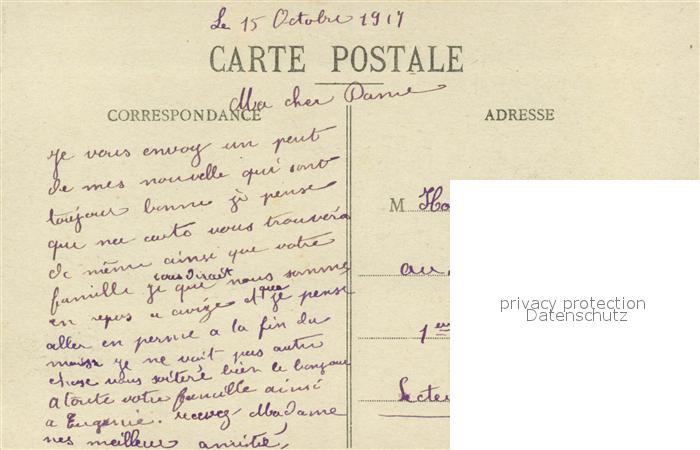 Le 15 Octobre 1917
CARTE POSTALE
Ma cher Dame
CORRESPONDANCE
ADRESSE
Je vous envoy un peut
de mes nouvelle qui sont
toujour bonne je pense
que ma carto vous trouvera
de même ainsi que votre
famille je vous dirait que nous sommes
en repos a que je pense
aller en permie a la fin du
mois je ne voit pas autre
chose vous soiteré bien le bonjour
a toute votre famille ainsi
a Eugenie. recevez Madame
mes meilleur amitié,
M Ho
au
1er
Secteu
privacy protection
Datenschutz